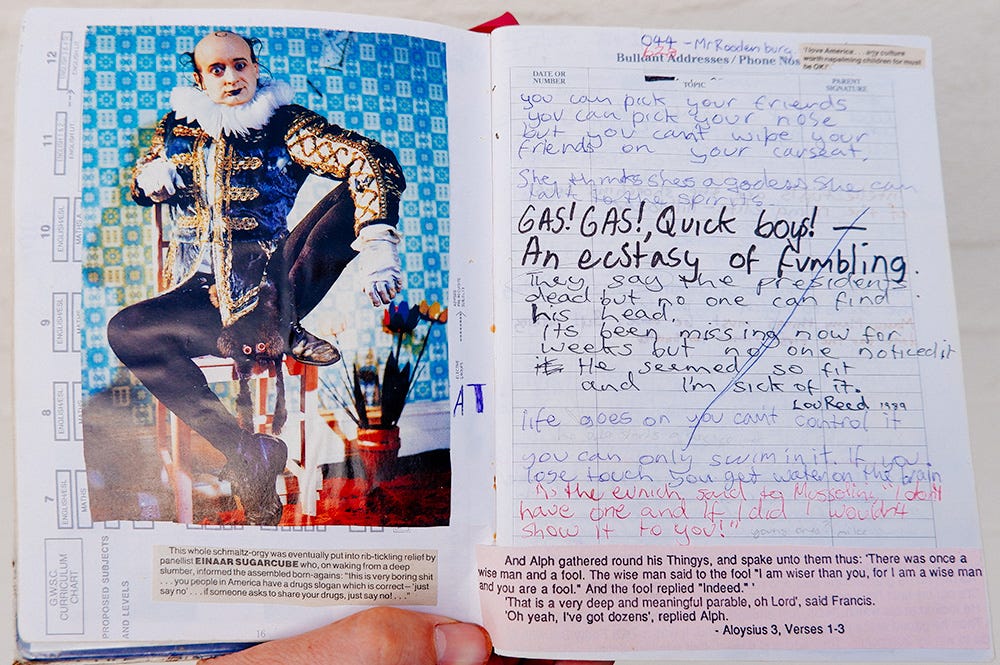 12
11
10
9
8
7
ENGLISH/ESL
MATHS A
ENGLISH/ESL
ENGLISH/ESL
ENGLISH/ESL
MATHS
G.W.S.C.
CURRICULUM
CHART
PROPOSED SUBJECTS
AND LEVELS
AT
This whole schmaltz-orgy was eventually put into rib-tickling relief by
panellist EINAAR SUGARCUBE who, on waking from a deep
slumber, informed the assembled born-agains: "this is very boring shit
. . . you people in America have a drugs slogan which is correct – 'just
say no' . . . if someone asks to share your drugs, just say no! . . ."
16
044 - Mr Roodenburg
Bullcant Addresses / Phone Nos
'I love America . . . any culture
worth napalming children for must
be OK!'
DATE OR
NUMBER
TOPIC
PARENT
SIGNATURE
you can pick your friends
you can pick your nose
but you cant wipe your
friends on your carseat.
She thinks shes a godess she can
talk to the spirits.
GAS! GAS!, Quick boys! —
An ecstasy of fumbling.
They say the presidents
dead but no one can find
his head.
its been missing now for
weeks but no one noticed it
He seemed so fit
and I'm sick of it.
Lou Reed 1989
life goes on you cant control it
you can only swim in it. If you
lose touch you get water on the brain
As the eunich said to Mussolini, "I don't
have one and if I did I wouldn't
show it to you!"
young ones
And Alph gathered round his Thingys, and spake unto them thus: 'There was once a
wise man and a fool. The wise man said to the fool "I am wiser than you, for I am a wise man
and you are a fool." And the fool replied "Indeed." '
'That is a very deep and meaningful parable, oh Lord', said Francis.
'Oh yeah, I've got dozens', replied Alph.
- Aloysius 3, Verses 1-3